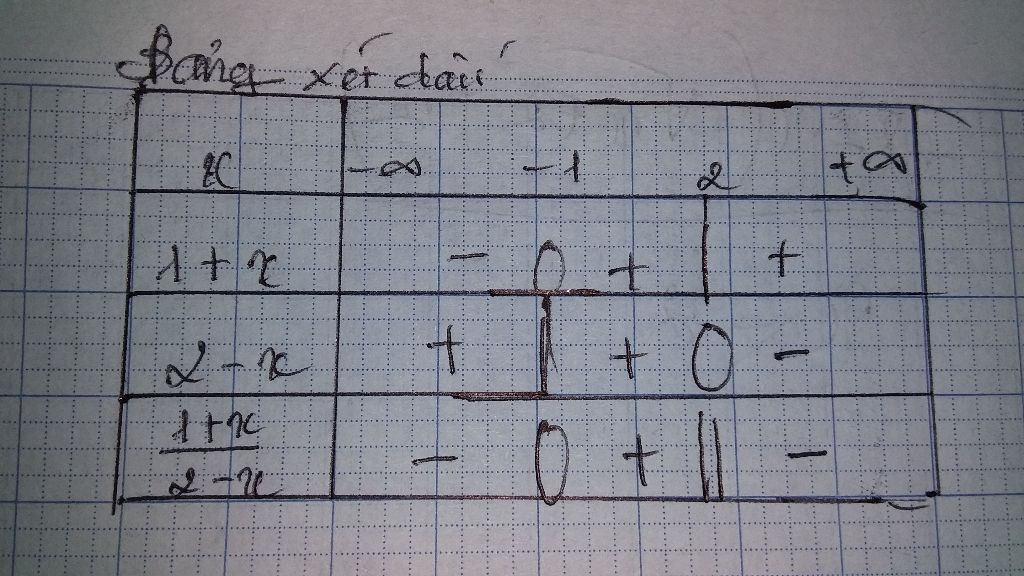 Bảng xét dấu
x -∞ -1 2 +∞
1+x - 0 + | +
2-x + | + 0 -
1+x
2-x - 0 + || -